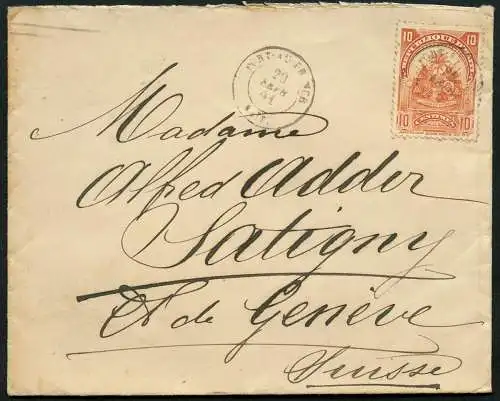 10 10
REPUBLIQUE
10 10
PORT-AU-PRINCE
20
Madame
Alfred Adder
Satigny
Ct de Genève
Suisse